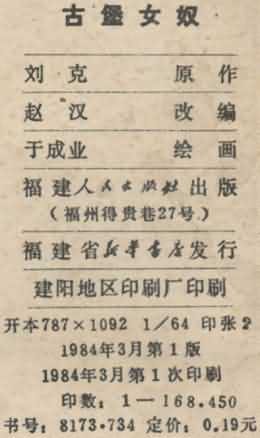 古堡女奴
刘克 原作
赵汉 改编
于成业 绘画
福建人民出版社出版
（福州得贵巷27号）
福建省新华书店发行
建阳地区印刷厂印刷
开本787×1092 1/64 印张2
1984年3月第1版
1984年3月第1次印刷
印数：1—168.450
书号：8173·734 定价：0.19元